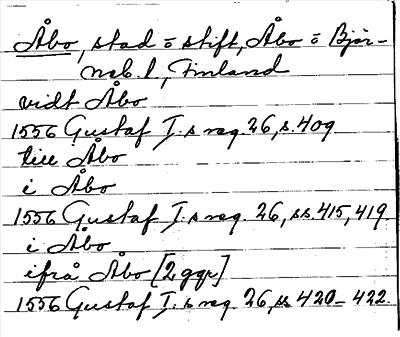 Åbo, stad = stift, Åbo = Björ-
neb. l., Finland
vidt Åbo
1556 Gustaf I:s reg. 26, s. 409
till Åbo
i Åbo
1556 Gustaf I:s reg. 26, ss. 415, 419
i Åbo
ifrå Åbo [2 ggr]
1556 Gustaf I:s reg. 26, ss 420-422.